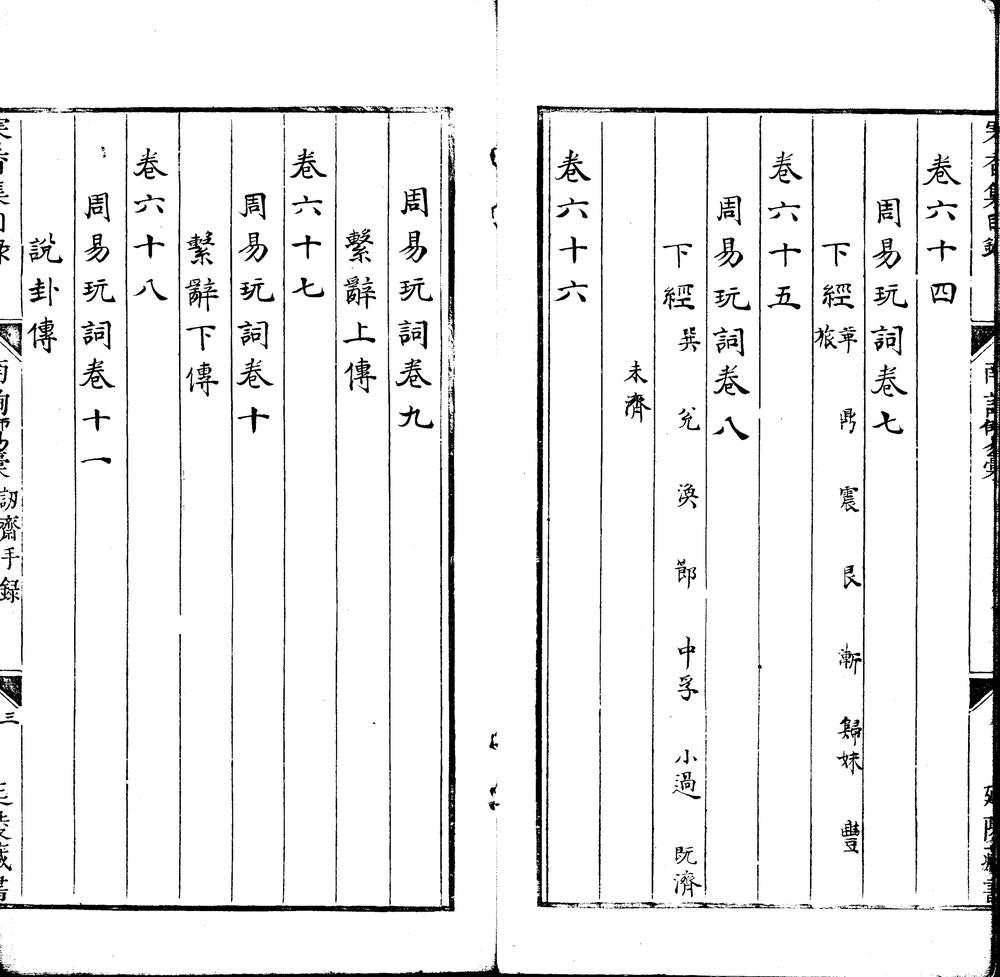 卷六十四
周易玩詞卷七
下經 革 鼎 震 艮 漸 歸妹 豐
旅
卷六十五
周易玩詞卷八
下經 巽 兌 渙 節 中孚 小過 既濟
未濟
卷六十六
周易玩詞卷九
繫辭上傳
卷六十七
周易玩詞卷十
繫辭下傳
卷六十八
周易玩詞卷十一
說卦傳
訒齋手録
三